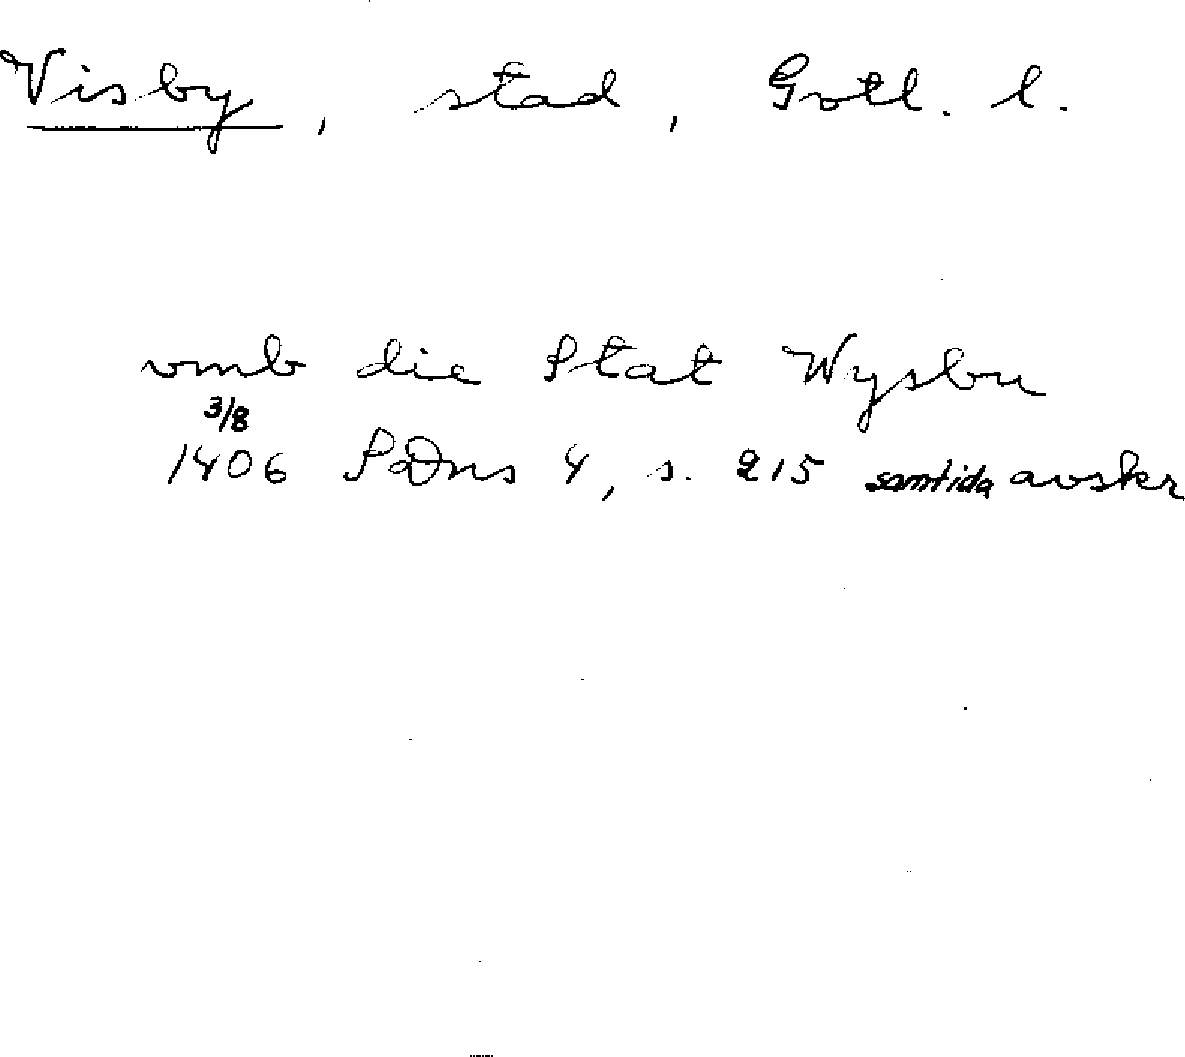 Visby, stad, Gotl. l.
vmb die Stat Wysbu
3/8
1406 SDns 4, s. 215 samtida avskr